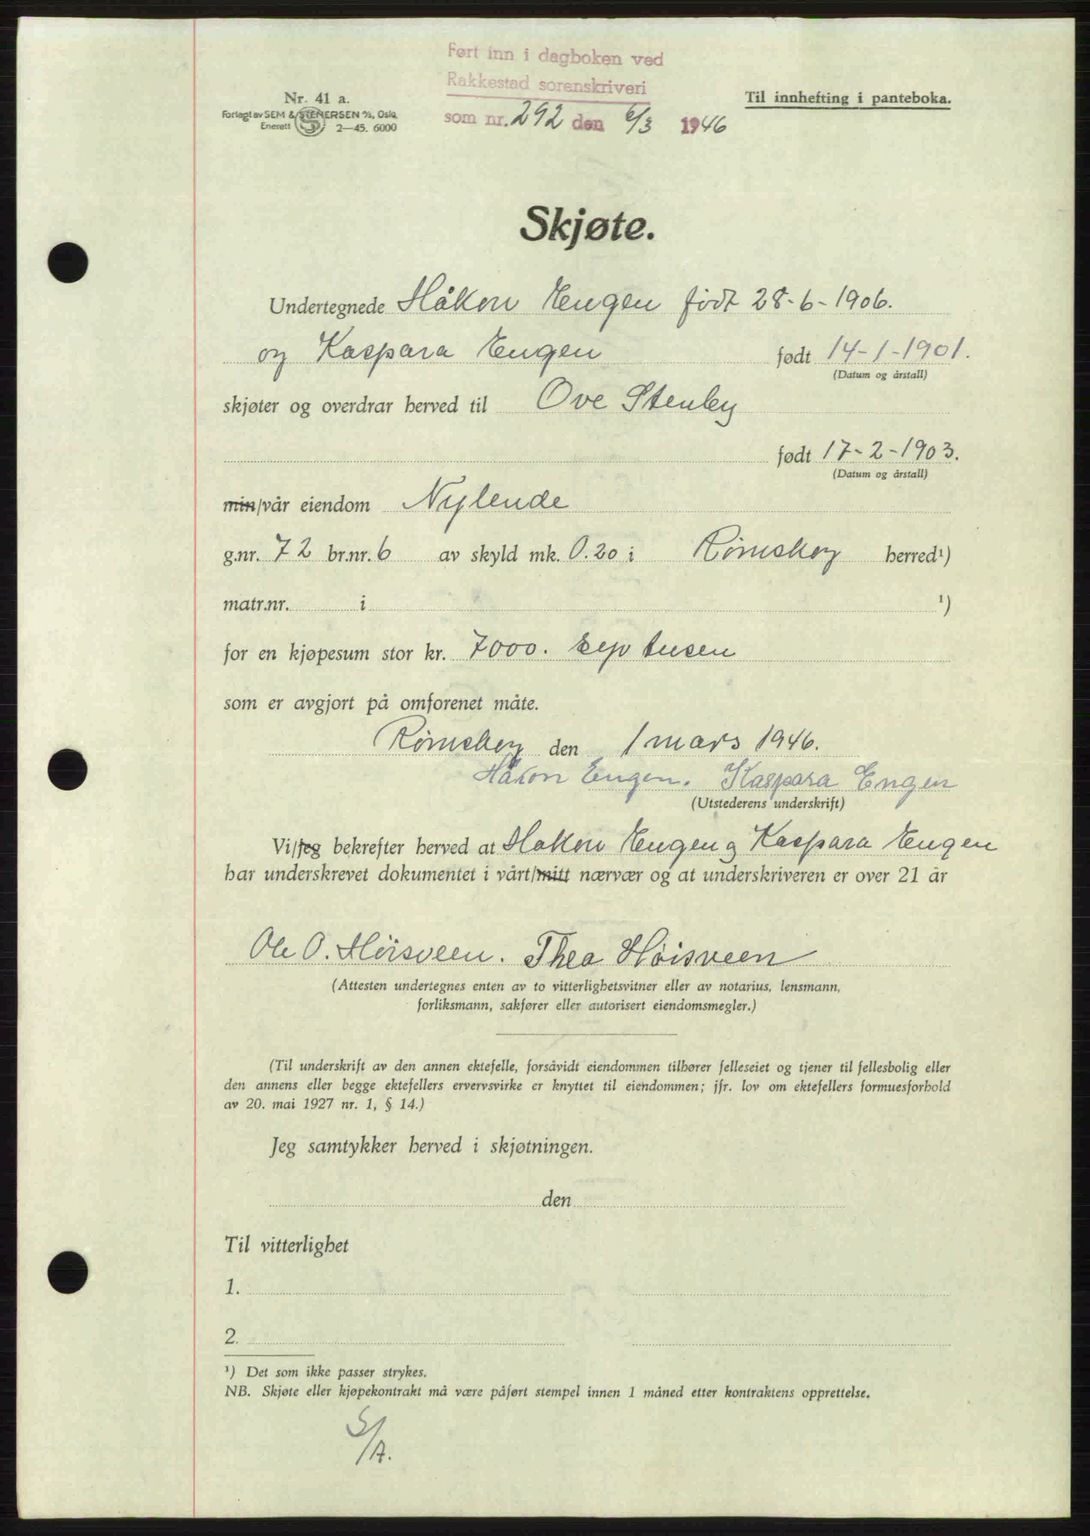 Ført inn i dagboken ved
Rakkestad sorenskriveri
som nr. 292 den 6/3 1946
Nr. 41 a.
Forlagt av SEM & STENERSEN A/S, Oslo
Enerett 2—45. 6000
Til innhefting i panteboka.
Skjøte.
Undertegnede Håkon Engen født 28-6-1906.
og Kaspara Engen født 14-1-1901.
(Datum og årstall)
skjøter og overdrar herved til Ove Stenby
født 17-2-1903.
(Datum og årstall)
min/vår eiendom Nylende
g.nr. 72 br.nr. 6 av skyld mk. 0.20 i Rømskog herred¹)
matr.nr. i ¹)
for en kjøpesum stor kr. 7000. syv tusen
som er avgjort på omforenet måte.
Rømskog den 1 mars 1946.
Håkon Engen. Kaspara Engen
(Utstederens underskrift)
Vi/jeg bekrefter herved at Håkon Engen og Kaspara Engen
har underskrevet dokumentet i vårt/mitt nærvær og at underskriveren er over 21 år
Ole O. Høisveen. Thea Høisveen
(Attesten undertegnes enten av to vitterlighetsvitner eller av notarius, lensmann,
forliksmann, sakfører eller autorisert eiendomsmegler.)
(Til underskrift av den annen ektefelle, forsåvidt eiendommen tilhører felleseiet og tjener til fellesbolig eller
den annens eller begge ektefellers ervervsvirke er knyttet til eiendommen; jfr. lov om ektefellers formuesforhold
av 20. mai 1927 nr. 1, § 14.)
Jeg samtykker herved i skjøtningen.
den
Til vitterlighet
1.
2.
¹) Det som ikke passer strykes.
NB. Skjøte eller kjøpekontrakt må være påført stempel innen 1 måned etter kontraktens opprettelse.